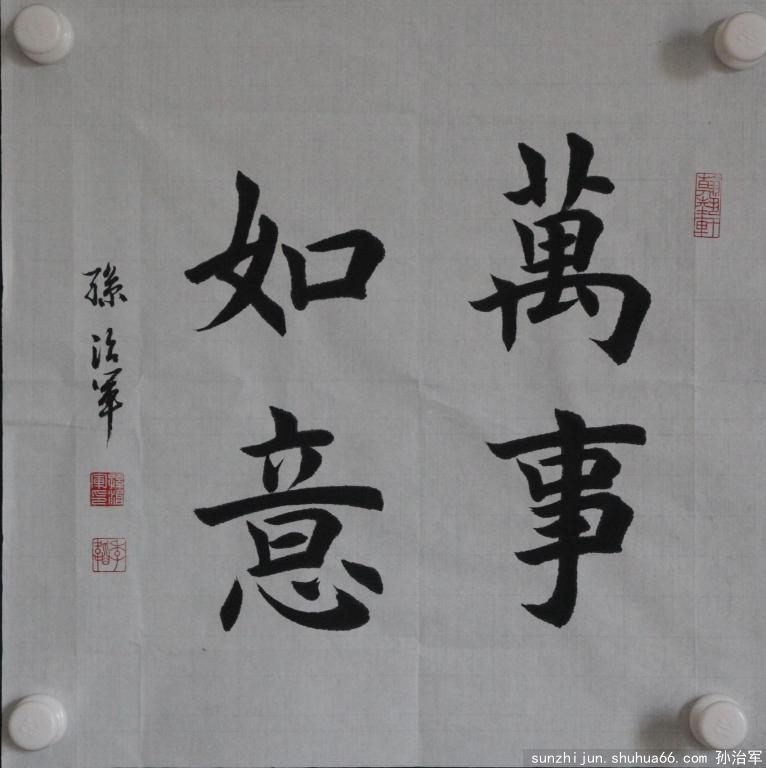 萬事
如意
孫治軍
sunzhijun.shuhua66.com 孙治军